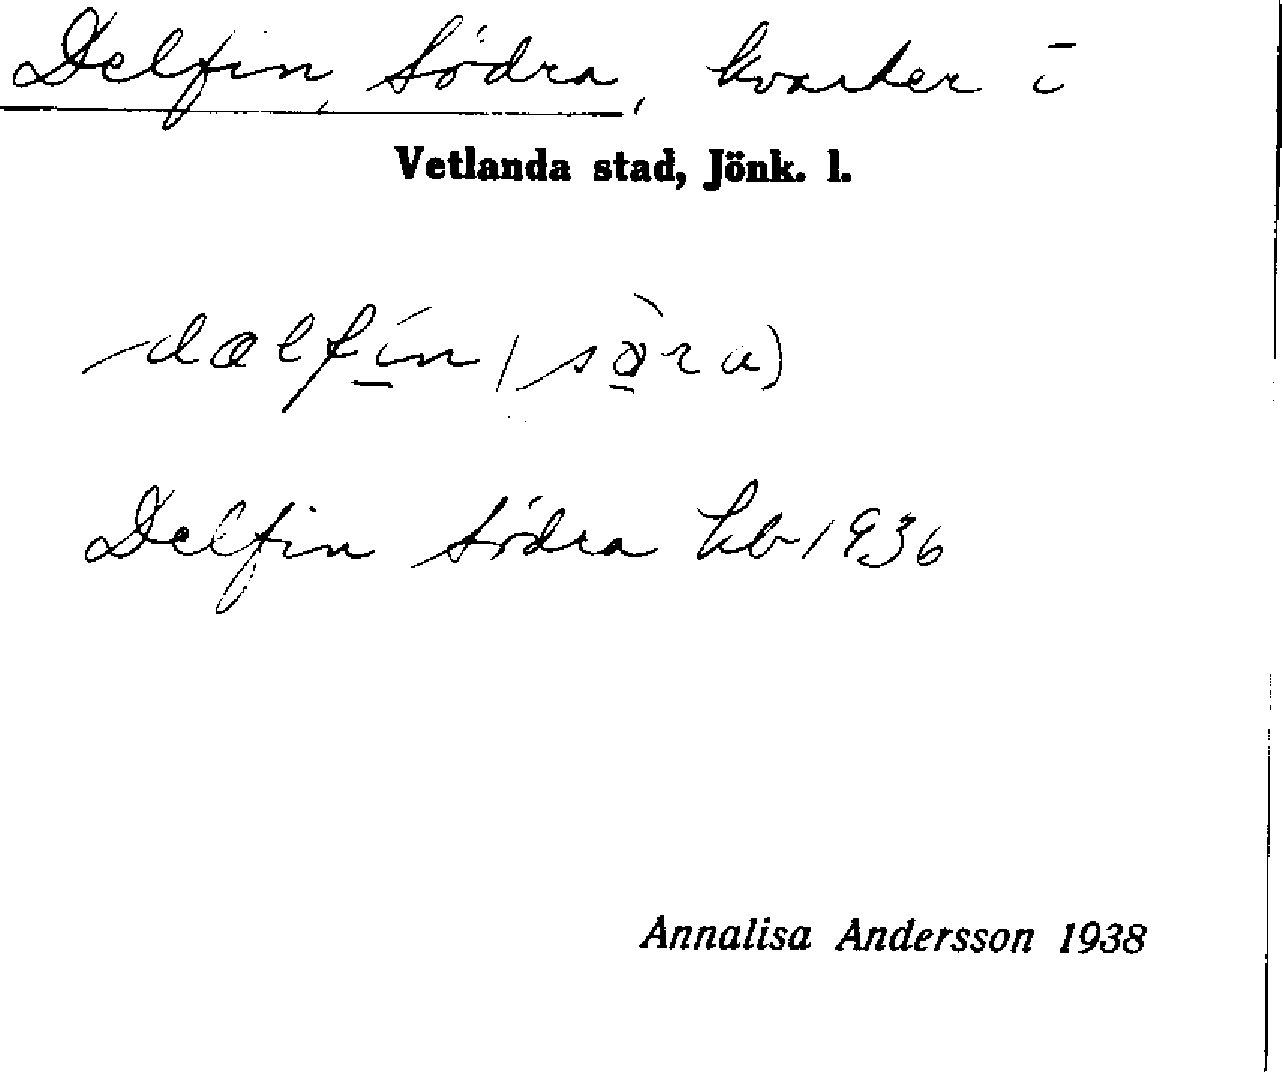 Delfin, Södra, kvarter i
Vetlanda stad, Jönk. l.
dælfín (sö̀ra)
Delfin Södra kb 1936
Annalisa Andersson 1938